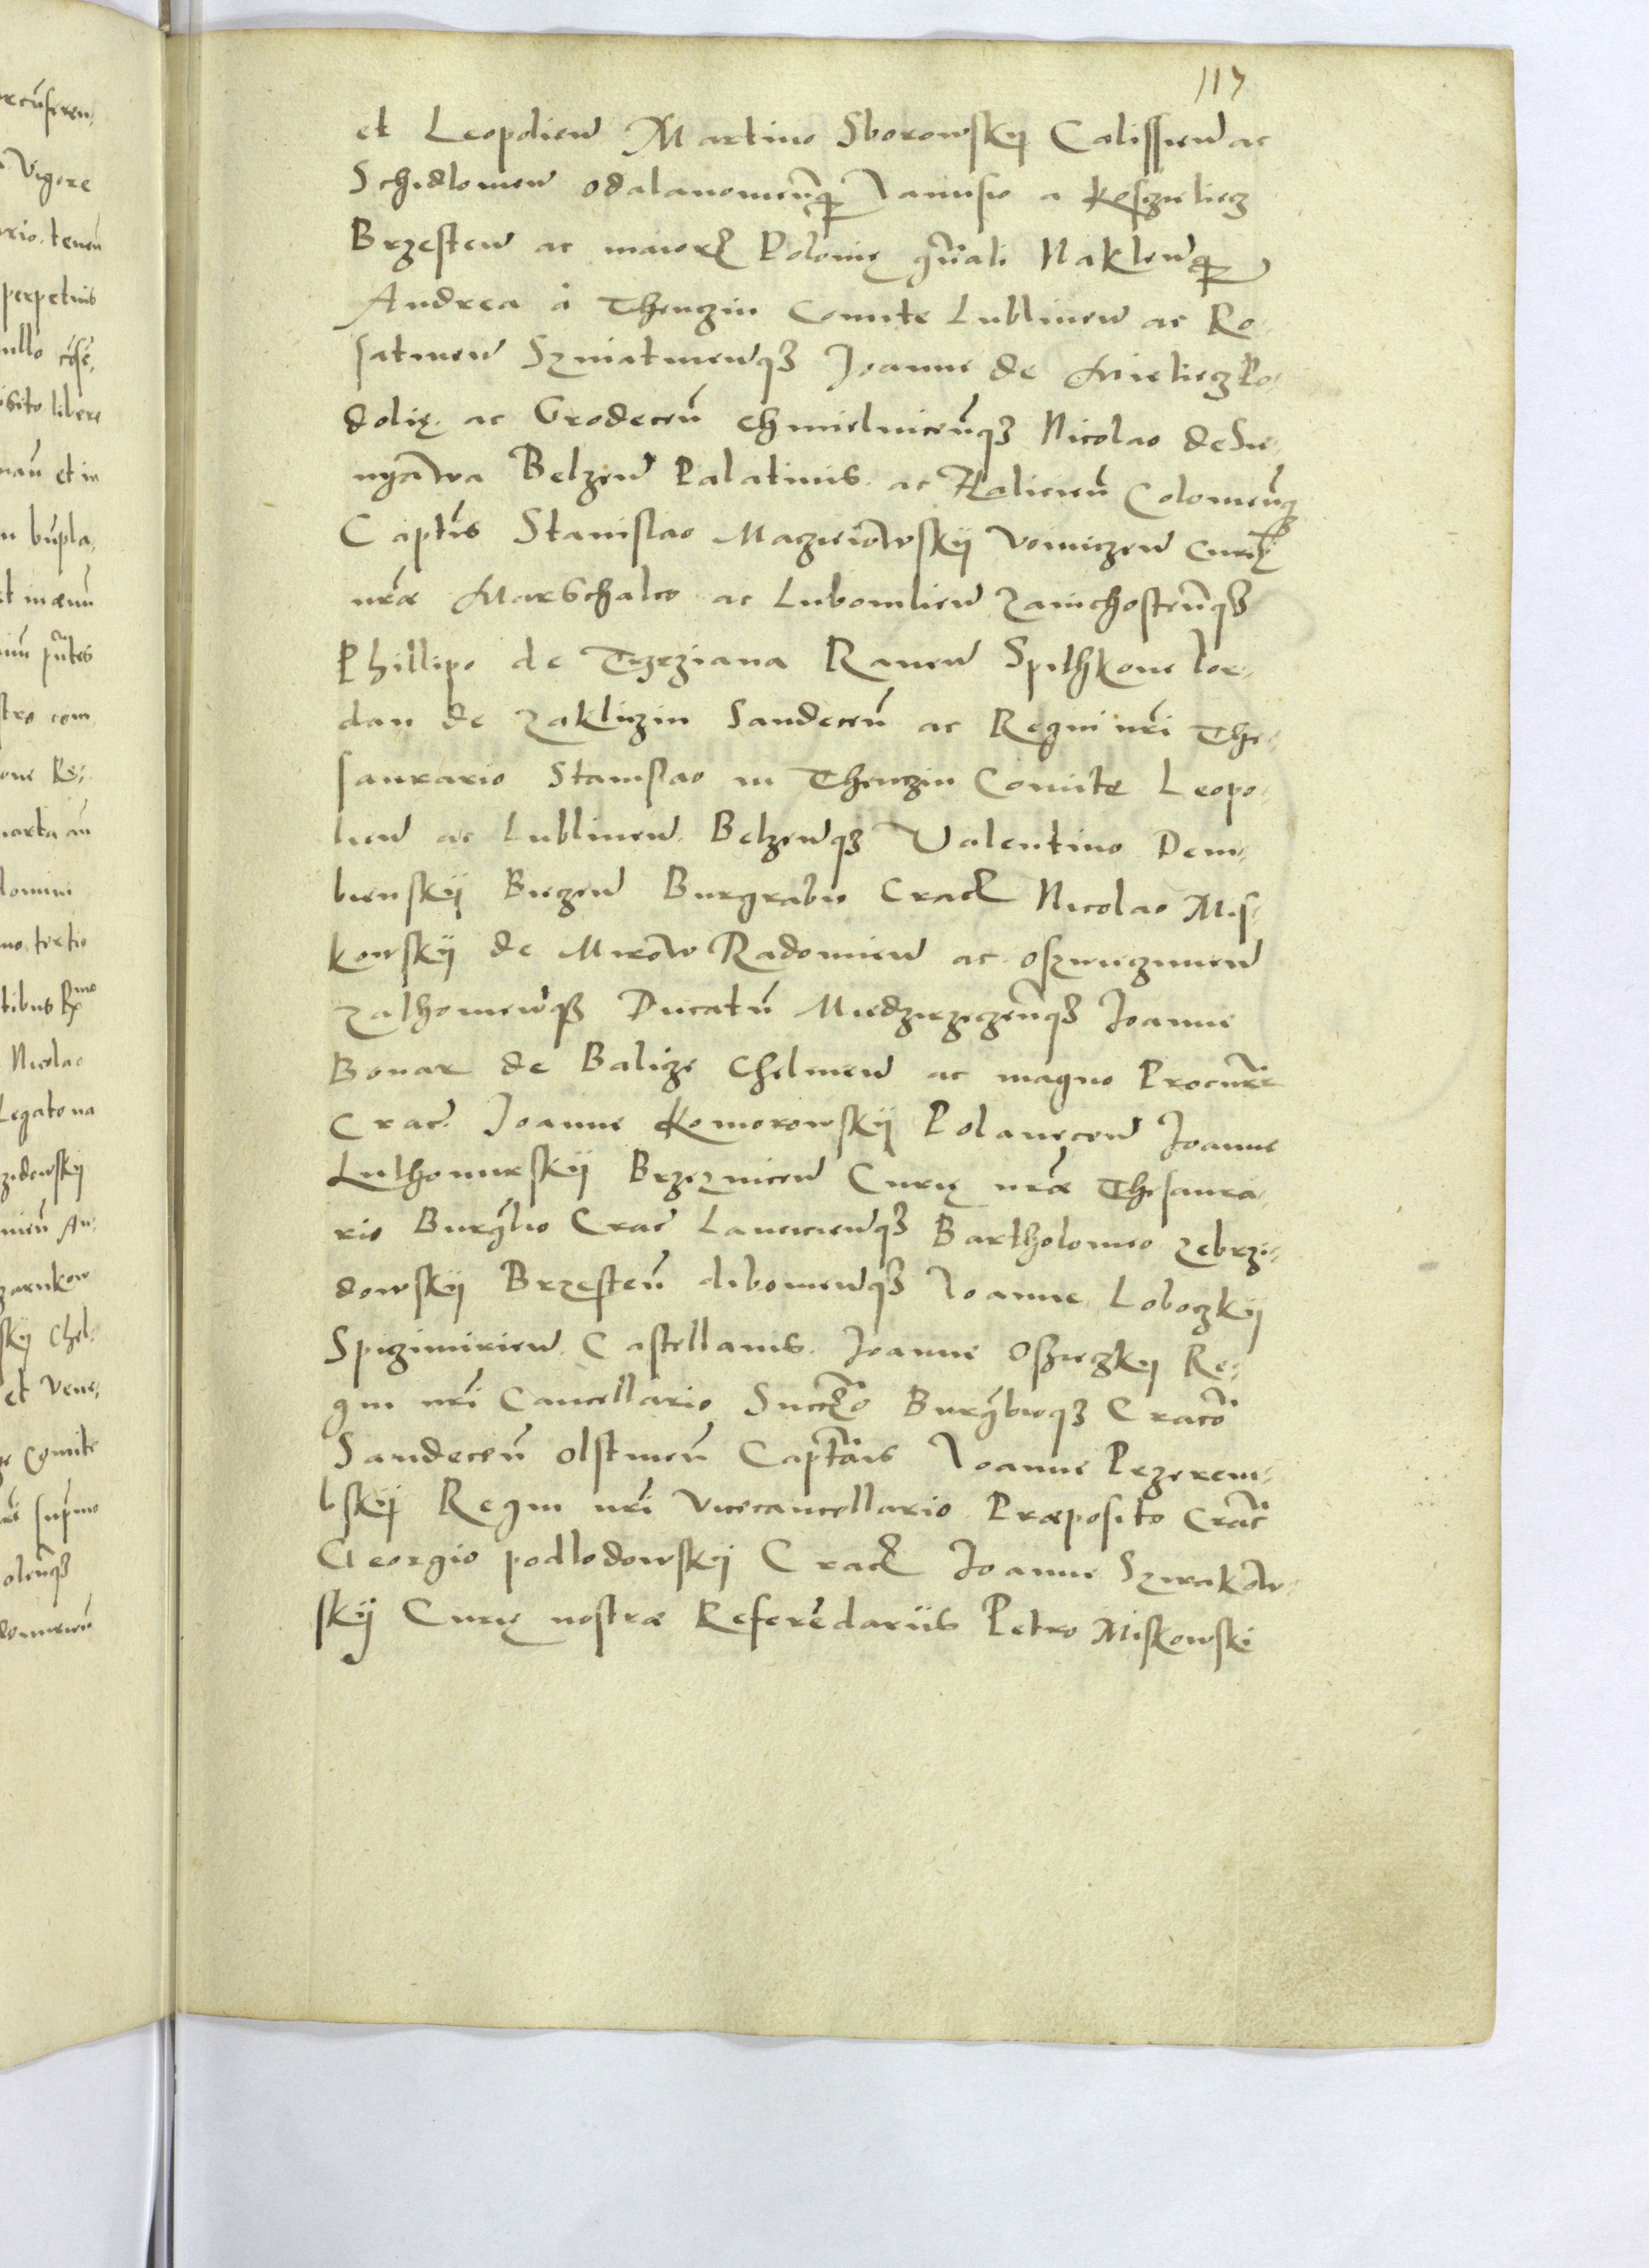 117
et Leopolien Martino Sborowskij Calissien ac
Schidlowien odalanowienq Janusio a Kosczieliecz
Brzesten ac maioris Polonię gnali Naklenq
Andrea à Thenczin Comite Lublinen ac Ro-
satinen Szniatinenq Joanne de Mieliecz Po-
dolię ac Grodecen Chmielnicenq Nicolao de Sie-
nyawa Belzen Palatinis ac Halicien Colomienq
Captis Stanislao Maczieiowskij Voiniczen Curię
nrae Marschalco ac Lubomlien Zawichostenq
Phillipo de Trzcziana Raven Spithkone Ior-
dan de Zakliczin Sandecen ac Regni nri The-
saurario Stanislao in Thenczin Comite Leopo-
lien ac Lublinen Belzenq Valentino Dem-
bienskij Biczen Burgrabio Crac Nicolao Mis-
kowskij de Mirow Radomien ac Oszwieczimen
Zathorienq Ducatu Miedzirzeczenq Joanne
Bonar de Balicze Chelmen ac magno Procure
Crac Joanne Komorowskij Polanecen Joanne
Luthomirskij Brzeznicen Curię nrae Thesaura-
rio Burgbio Crac Lancicienq Bartholomeo Zebrzi-
dowskij Brzesten dibowienq Joanne Loboczkij
Spiczimirien Castellanis Joanne Oszieczkij Re-
gni nri Cancellario Succamo Burgbioq Craco
Sandecen Olstinen Captaneis Joanne Przerem-
bskij Regni nri Vicecancellario Praeposito Crac
Georgio podlodowskij Crac Joanne Szierakow-
skij Curię nostrae Referedariis Petro Miskowski